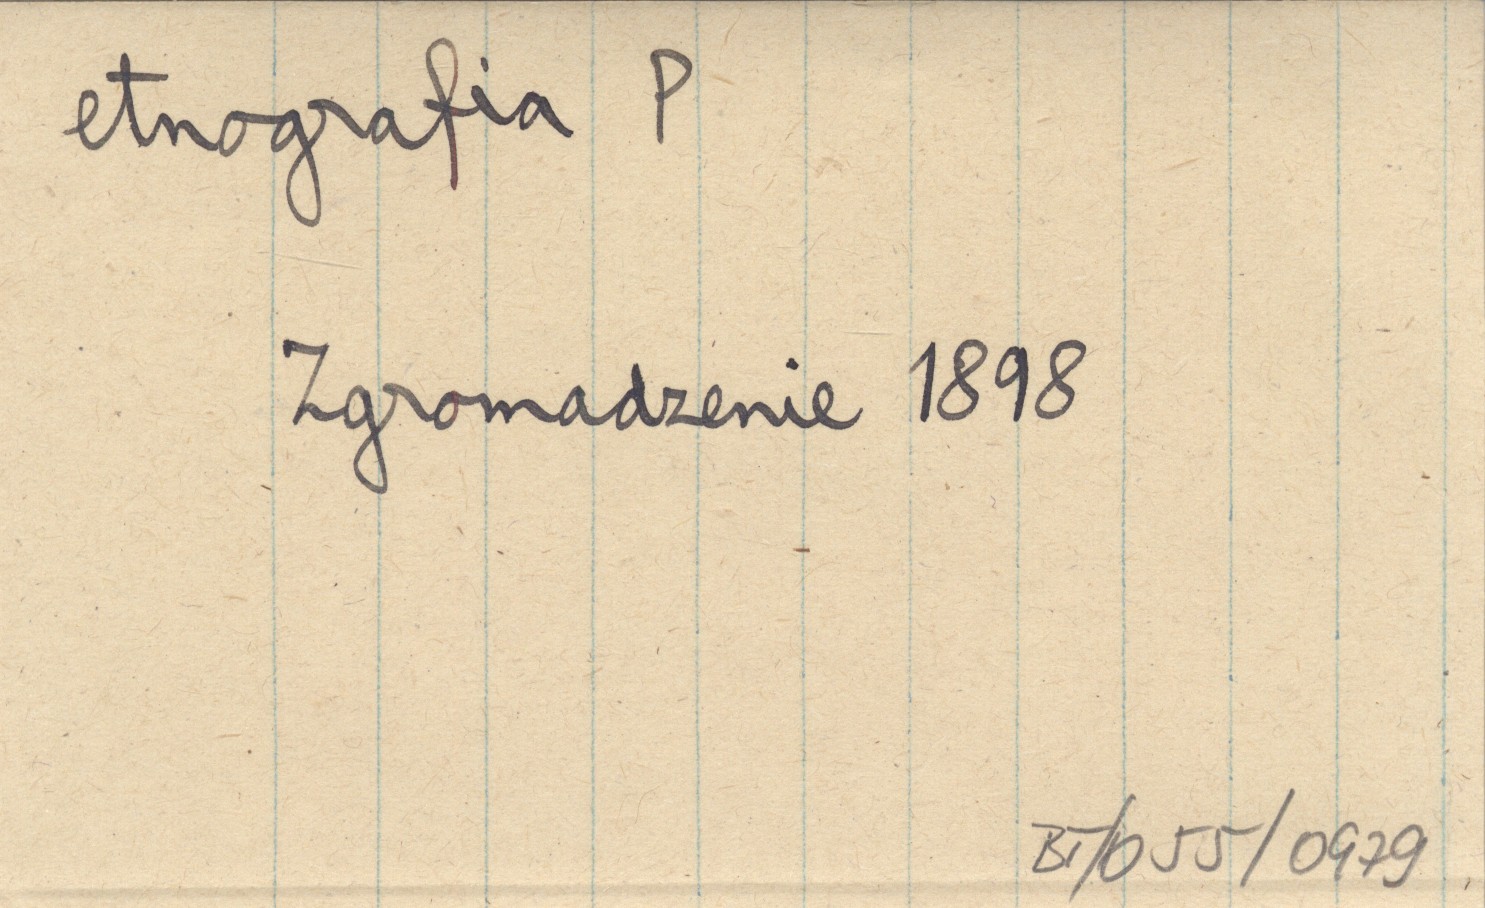 etnografia P
Zgromadzenie 1898
BT/055/0979